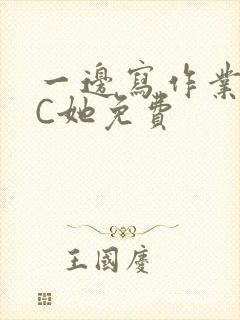 一邊寫作業
C她免費
王國慶